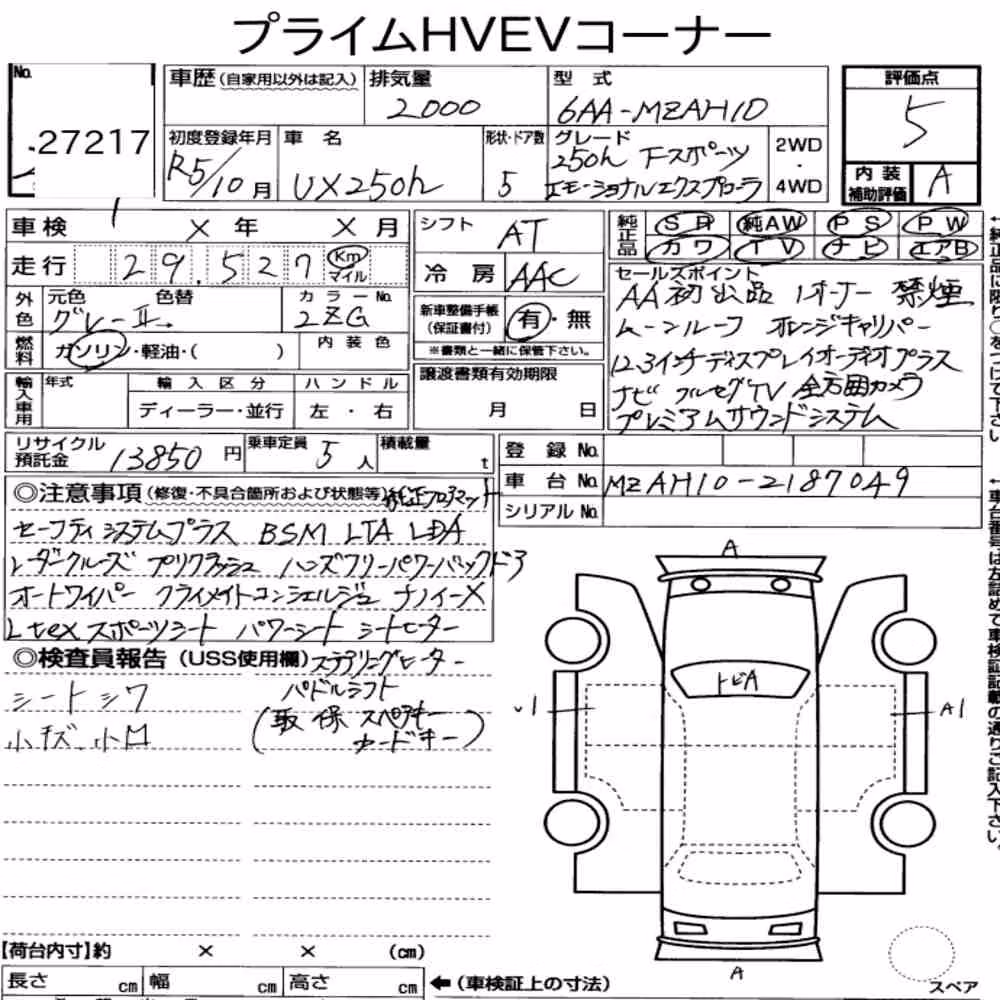 プライムHVEVコーナー
No.
27217
車歴(自家用以外は記入)
排気量
2000
型 式
6AA-MZAH10
評価点
5
初度登録年月
R5/10月
車 名
UX250h
形状・ドア数
5
グレード
250h Fスポーツ
エモーショナルエクスプローラ
2WD
・
4WD
内装
補助評価
A
車検
× 年 × 月
シフト
AT
純正品
SR 純AW PS PW
カワ TV ナビ エアB
走行
29,527
Km
マイル
冷 房
AAC
セールスポイント
AA初出品 1オーナー 禁煙
ムーンルーフ オレンジキャリパー
12.3インチディスプレイオーディオプラス
ナビ フルセグTV 全方囲カメラ
プレミアムサウンドシステム
外色
元色
色替
グレーII
カラーNo.
2ZG
新車整備手帳
(保証書付)
有・無
※書類と一緒に保管下さい。
燃料
ガソリン・軽油・( )
内装色
譲渡書類有効期限
月 日
輸入車用
年式
輸入区分
ハンドル
ディーラー・並行
左・右
リサイクル
預託金
13850円
乗車定員
5人
積載量
t
登 録 No.
車 台 No.
MZAH10-2187049
シリアル No.
◎注意事項(修復・不具合箇所および状態等)純正フロアマット
セーフティシステムプラス BSM LTA LDA
レーダークルーズ プリクラッシュ ハンズフリーパワーバックドア
オートワイパー クライメイトコンシェルジュ ナノイーX
Ltexスポーツシート パワーシート シートヒーター
◎検査員報告(USS使用欄)ステアリングヒーター
パドルシフト
(取 保 スペアキー
カードキー)
シートシワ
小キズ、小凹
A
トビA
A1
A
スペア
【荷台内寸】約 × × (cm)
長さ cm 幅 cm 高さ cm
←(車検証上の寸法)